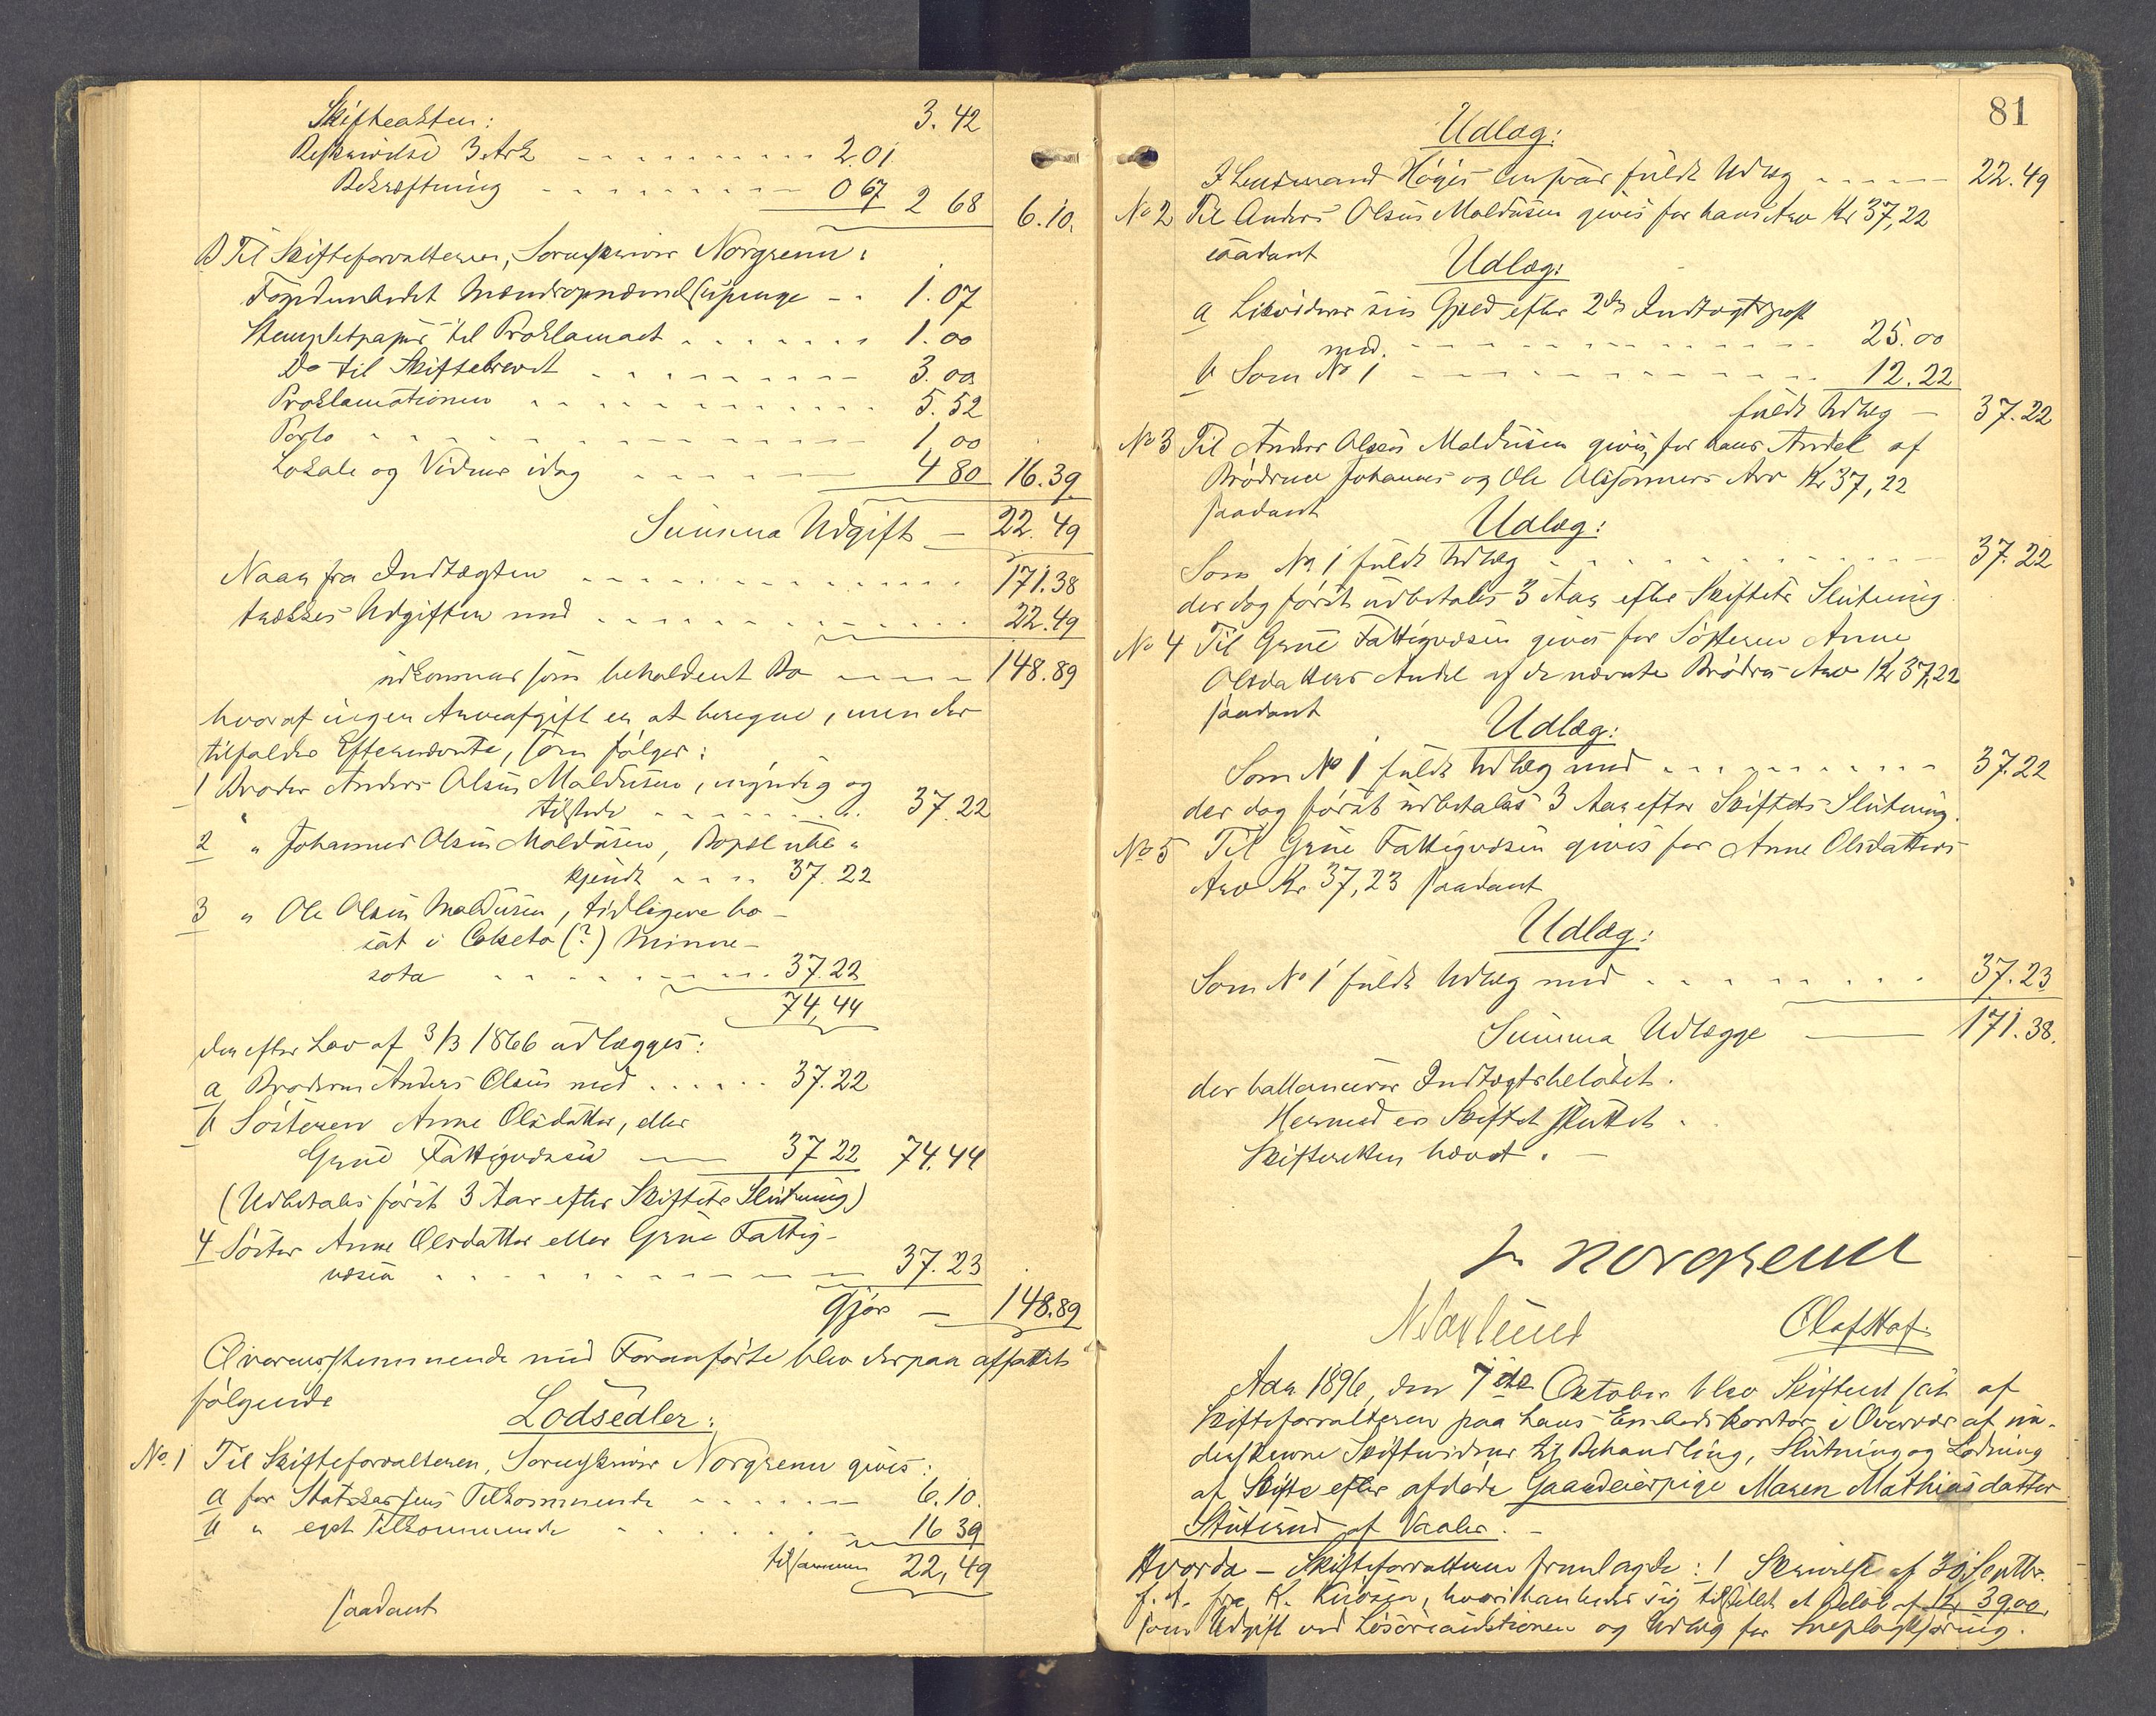 Skifteakten: 3.42
Beskrivelse 3 Ark 2.01
Bekræftning 0 67 2 68 6.10.
B Til Skifteforvalteren, Sorenskriver Norgrenn:
Fogedembedet Mændsopnævnelsespenge 1.07
Stempletpapir til Proklamaet 1.00
Do til Skiftebrevet 3.00
Proklamationen 5.52
Porto 1,00
Lokale og Vidner idag 4 80 16.39
Summa Udgift 22.49
Naar fra Indtægten 171.38
trækkes Udgiften med 22.49
udkommer som beholdent Bo 148.89
hvoraf ingen Arveafgift er at beregne, men der
tilfalder Efternævnte, som følger:
1 Broder Anders Olsen Maldusen, myndig og
tilstede 37.22
2 " Johannes Olsen Maldusen, Bopæl ube-
kjendt 37.22
3 " Ole Olsen Maldusen, tidligere bo-
sat i Cokato (?) Minne-
sota 37.22
74,44
der efter Lov af 3/3 1866 udlægges:
a Broderen Anders Olsen med 37.22
b Søsteren Anne Olsdatter, eller
Grue Fattigvæsen 37 22 74.44
(Udbetales først 3 Aar efter Skiftets Slutning)
4 Søster Anne Olsdatter eller Grue Fattig-
væsen 37.23
Gjør 148.89
Overensstemmende med Foranførte blev derpaa affattet
følgende
Lodsedler:
No. 1 Til Skifteforvalteren, Sorenskriver Norgrenn gives:
a for Statskassens Tilkommende 6.10.
b " eget Tilkommende 16 39
tilsammen 22,49
saadant
81
Udlæg:
I Lensmand Høyes Ansvar fuldt Udlæg 22.49
No 2 Til Anders Olsen Maldusen gives for hans Arv Kr 37,22
saadant
Udlæg:
a Likviderer sin Gjæld efter 2den Indtægtspost
med 25.00
b Som No 1 12.22
fuldt Udlæg 37.22
No 3 Til Anders Olsen Maldusen gives for hans Andel af
Brødrene Johannes og Ole Olssønners Arv Kr 37,22
saadant
Udlæg:
Som No 1 fuldt Udlæg 37.22
der dog først udbetales 3 Aar efter Skiftets Slutning.
No 4 Til Grue Fattigvæsen gives for Søsteren Anne
Olsdatters Andel af de nævnte Brødres Arv Kr 37,22
saadant
Udlæg:
Som No 1 fuldt Udlæg med 37.22
der dog først udbetales 3 Aar efter Skiftets Slutning.
No 5 Til Grue Fattigvæsen gives for Anne Olsdatters
Arv Kr. 37,23 saadant
Udlæg:
Som No 1 fuldt Udlæg med 37.23
Summa Udlægge 171.38.
der ballancerer Indtægtsbeløbet.
Hermed er Skiftet sluttet.
Skifteretten hævet.
Norgrenn
Olaf Hof.
Aar 1896, den 7de Oktober blev Skifteret sat af
Skifteforvalteren paa hans Embedskontor i Overvær af un-
derskrevne Skiftevidner til Behandling, Slutning og Lodning
af Skifte efter afdøde Gaardeierpige Maren Mathiasdatter
Stutlund af Vaaler.
Hvorda – Skifteforvalteren fremlagde: 1 Skrivelse af 30 Septbr.
f. A. fra K. Knosen, hvori han beder sig tilstillet et Beløb af Kr 39,00
som Udgift ved Løsøreauktionen og Udlæg for Sneplogkjøring.